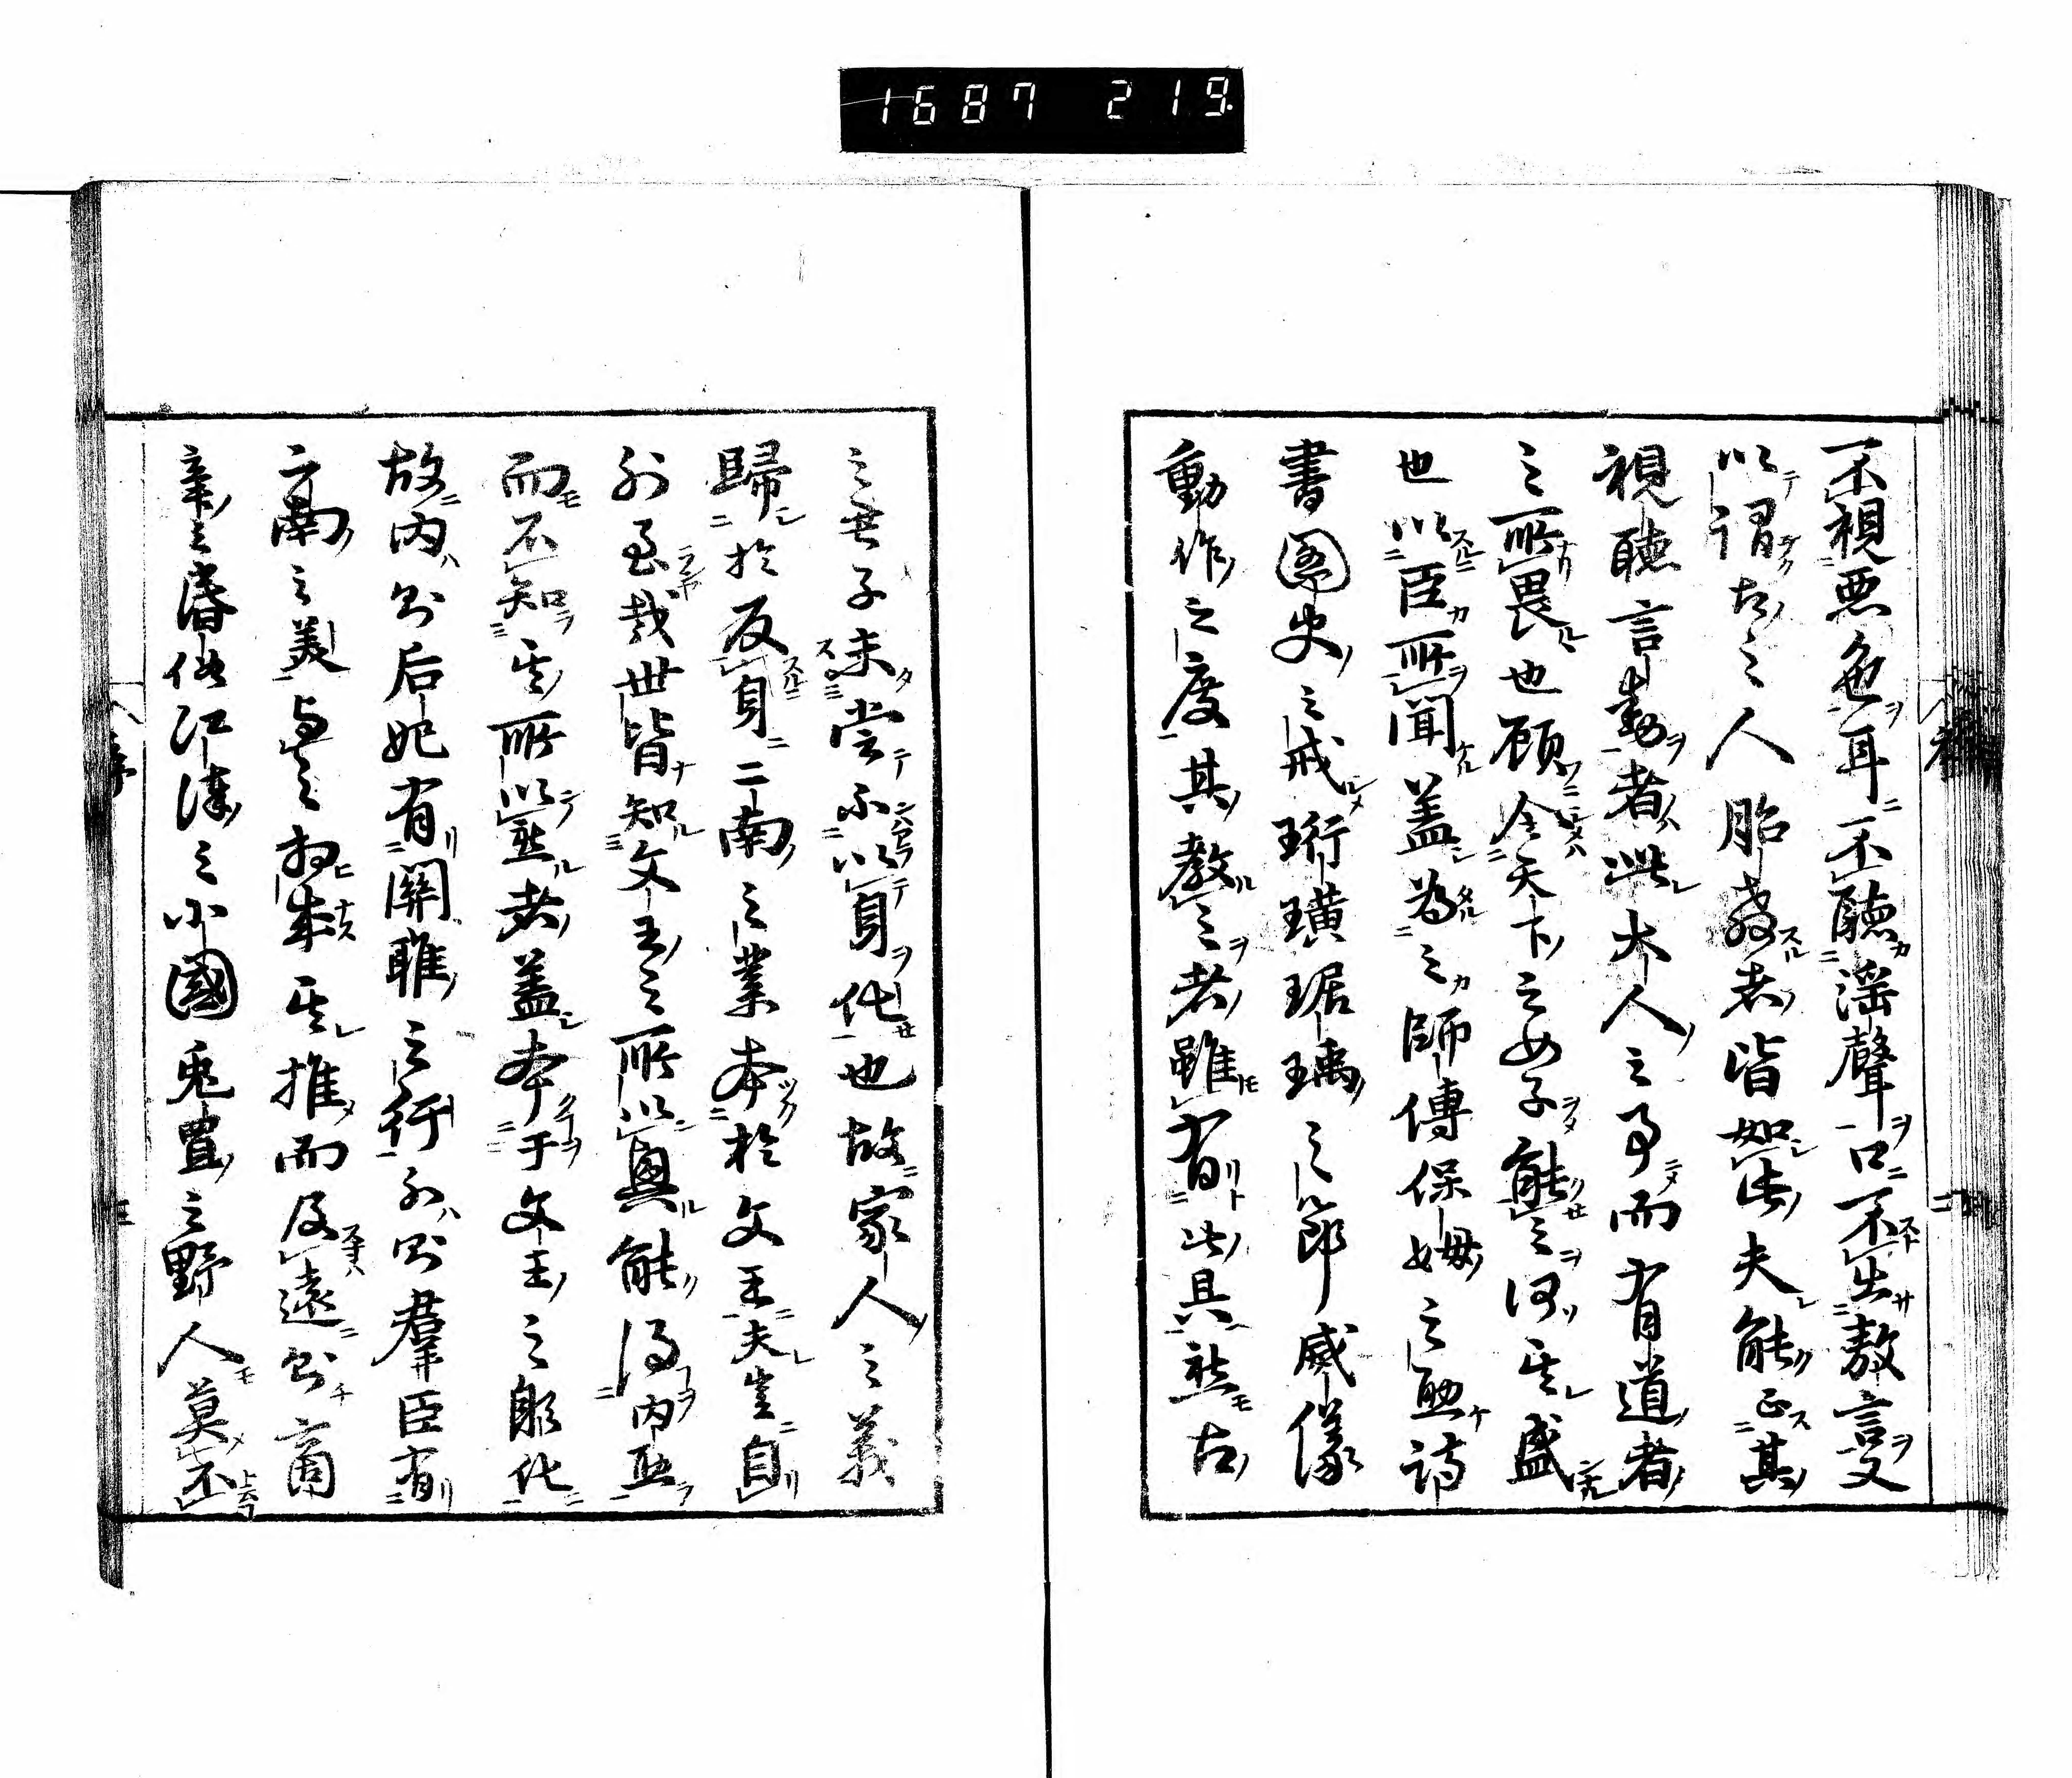 1687 219
不視惡色耳不聽淫聲口不出敖言又
以謂古之人胎教者皆如此夫能正其
視聽言動者此大人之事而有道者
之所畏也顧令天下之女子能之何其盛
也以臣所聞蓋為之師傅保姆之助詩
書圖史之戒珩璜琚瑀之節威儀
動作之度其教之者雖有此具然古
之君子未嘗不以身化也故家人之義
歸於反身二南之業本於文王夫豈自
外至哉世皆知文王之所以興能得內助
而不知其所以然者蓋本于文王之躬化
故內則后妃有關雎之行外則羣臣有
二南之美與之相成其推而及遠則商
辛之昏俗江漢之小國兔罝之野人莫不